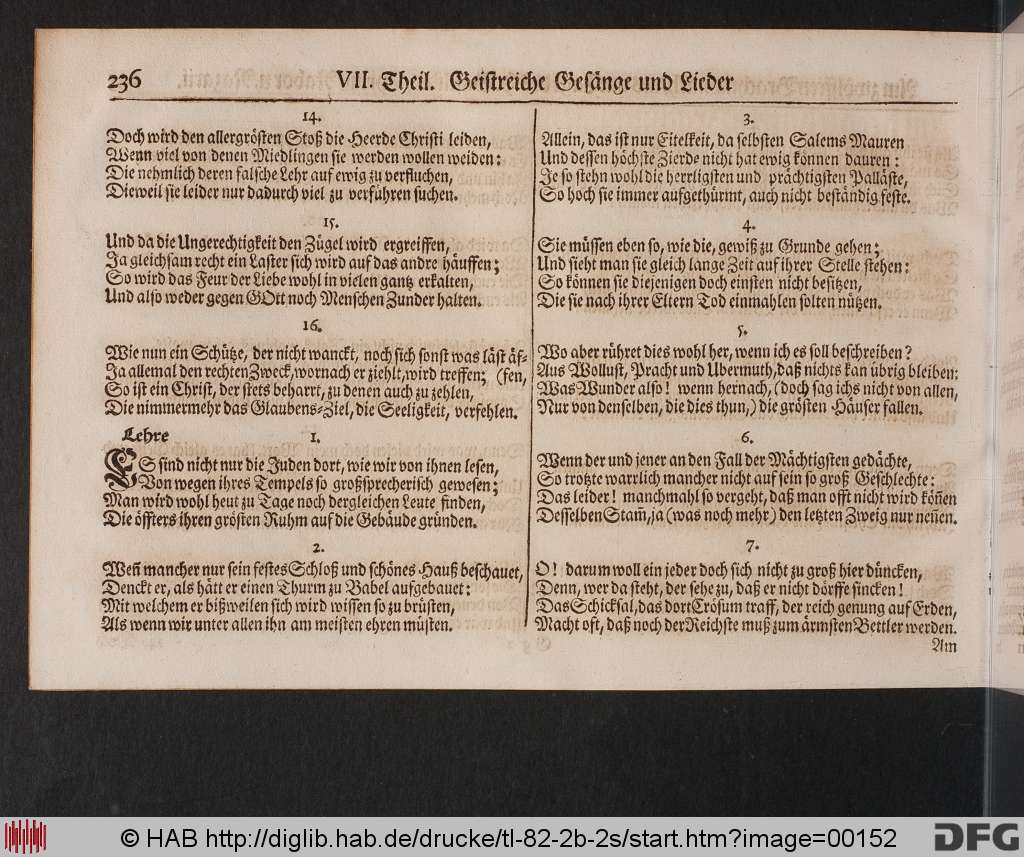 236 VII. Theil. Geistreiche Gesänge und Lieder
14.
Doch wird den allergrösten Stoß die Heerde Christi leiden,
Wenn viel von denen Miedlingen sie werden wollen weiden:
Die nehmlich deren falsche Lehr auf ewig zu verfluchen,
Dieweil sie leider nur dadurch viel zu verführen suchen.
15.
Und da die Ungerechtigkeit den Zügel wird ergreiffen,
Ja gleichsam recht ein Laster sich wird auf das andre häuffen;
So wird das Feur der Liebe wohl in vielen gantz erkalten,
Und also weder gegen GOtt noch Menschen Zunder halten.
16.
Wie nun ein Schütze, der nicht wanckt, noch sich sonst was läst äf-
Ja allemal den rechten Zweck, wornach er ziehlt, wird treffen; (fen,
So ist ein Christ, der stets beharrt, zu denen auch zu zehlen,
Die nimmermehr das Glaubens-Ziel, die Seeligkeit, verfehlen.
Lehre 1.
ES sind nicht nur die Juden dort, wie wir von ihnen lesen,
Von wegen ihres Tempels so großsprecherisch gewesen;
Man wird wohl heut zu Tage noch dergleichen Leute finden,
Die öffters ihren grösten Ruhm auf die Gebäude gründen.
2.
Weñ mancher nur sein festes Schloß und schönes Hauß beschauet,
Denckt er, als hätt er einen Thurm zu Babel aufgebauet:
Mit welchem er bißweilen sich wird wissen so zu brüsten,
Als wenn wir unter allen ihn am meisten ehren müsten.
3.
Allein, das ist nur Eitelkeit, da selbsten Salems Mauren
Und dessen höchste Zierde nicht hat ewig können dauren:
Je so stehn wohl die herrligsten und prächtigsten Palläste,
So hoch sie immer aufgethürmt, auch nicht beständig feste.
4.
Sie müssen eben so, wie die, gewiß zu Grunde gehen;
Und sieht man sie gleich lange Zeit auf ihrer Stelle stehen:
So können sie diejenigen doch einsten nicht besitzen,
Die sie nach ihrer Eltern Tod einmahlen solten nützen.
5.
Wo aber rühret dies wohl her, wenn ich es soll beschreiben?
Aus Wollust, Pracht und Ubermuth, daß nichts kan übrig bleiben:
Was Wunder also! wenn hernach, (doch sag ichs nicht von allen,
Nur von denselben, die dies thun,) die grösten Häuser fallen.
6.
Wenn der und jener an den Fall der Mächtigsten gedächte,
So trotzte warrlich mancher nicht auf sein so groß Geschlechte:
Das leider! manchmahl so vergeht, daß man offt nicht wird köñen
Desselben Stam̃, ja (was noch mehr) den letzten Zweig nur neñen.
7.
O! darum woll ein jeder doch sich nicht zu groß hier düncken,
Denn, wer da steht, der sehe zu, daß er nicht dörffe sincken!
Das Schicksal, das dort Crösum traff, der reich genung auf Erden,
Macht oft, daß noch der Reichste muß zum ärmsten Bettler werden.
Am
© HAB http://diglib.hab.de/drucke/tl-82-2b-2s/start.htm?image=00152 DFG